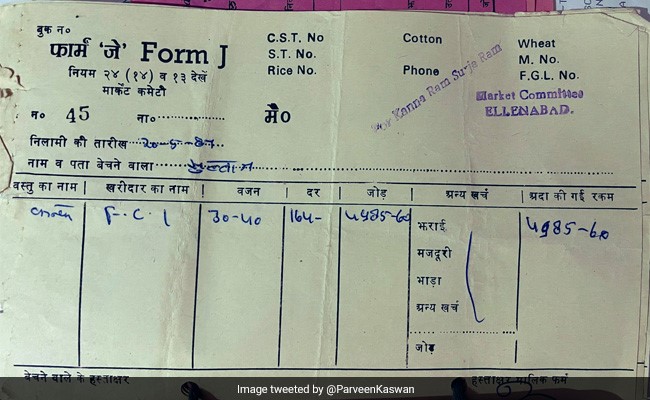 बुक न०
फार्म 'जे' Form J
नियम २४ (१४) व १३ देखें
मार्केट कमेटी
C.S.T. No
S.T. No.
Rice No.
Cotton
Phone
Wheat
M. No.
F.G.L. No.
For Kanna Ram Surja Ram
Market Committee
ELLENABAD.
न० 45 ता०
मै०
निलामी की तारीख २०-५-८७
नाम व पता बेचने वाला
वस्तु का नाम | खरीदार का नाम | वजन | दर | जोड़ | अन्य खर्च | अदा की गई रकम
F.C.I 30-40 164-
झराई
मजदूरी
भाड़ा
अन्य खर्च
जोड़
बेचने वाले के हस्ताक्षर
हस्ताक्षर मालिक फर्म
Image tweeted by @ParveenKaswan